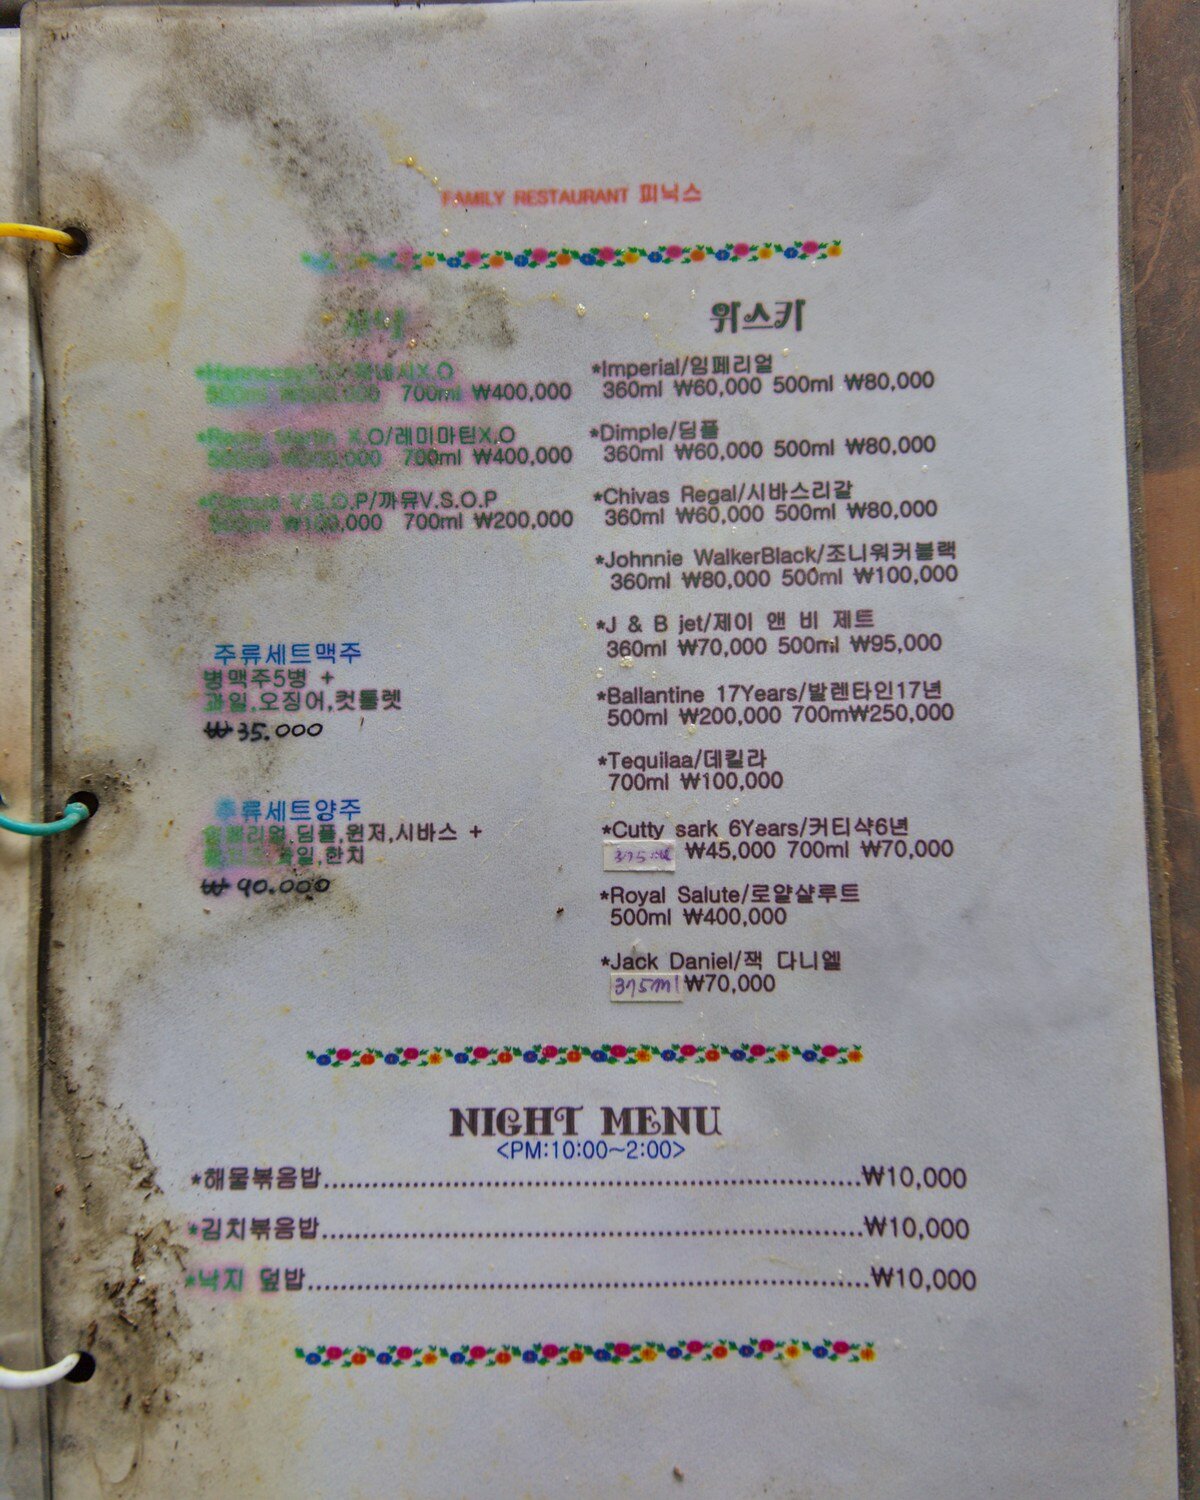 FAMILY RESTAURANT 피닉스
X.O
700ml ₩400,000
X.O/레미마틴X.O
700ml ₩400,000
V.S.O.P/까뮤V.S.O.P
₩100,000 700ml ₩200,000
주류세트맥주
병맥주5병 +
과일,오징어,컷틀렛
₩35.000
주류세트양주
임페리얼,딤플,윈저,시바스 +
과일,한치
₩90.000
위스키
*Imperial/임페리얼
360ml ₩60,000 500ml ₩80,000
*Dimple/딤플
360ml ₩60,000 500ml ₩80,000
*Chivas Regal/시바스리갈
360ml ₩60,000 500ml ₩80,000
*Johnnie WalkerBlack/조니워커블랙
360ml ₩80,000 500ml ₩100,000
*J & B jet/제이 앤 비 제트
360ml ₩70,000 500ml ₩95,000
*Ballantine 17Years/발렌타인17년
500ml ₩200,000 700m₩250,000
*Tequilaa/데킬라
700ml ₩100,000
*Cutty sark 6Years/커티샥6년
375ml ₩45,000 700ml ₩70,000
*Royal Salute/로얄샬루트
500ml ₩400,000
*Jack Daniel/잭 다니엘
375ml ₩70,000
NIGHT MENU
<PM:10:00~2:00>
*해물볶음밥..................................................................₩10,000
*김치볶음밥..................................................................₩10,000
*낙지 덮밥....................................................................₩10,000